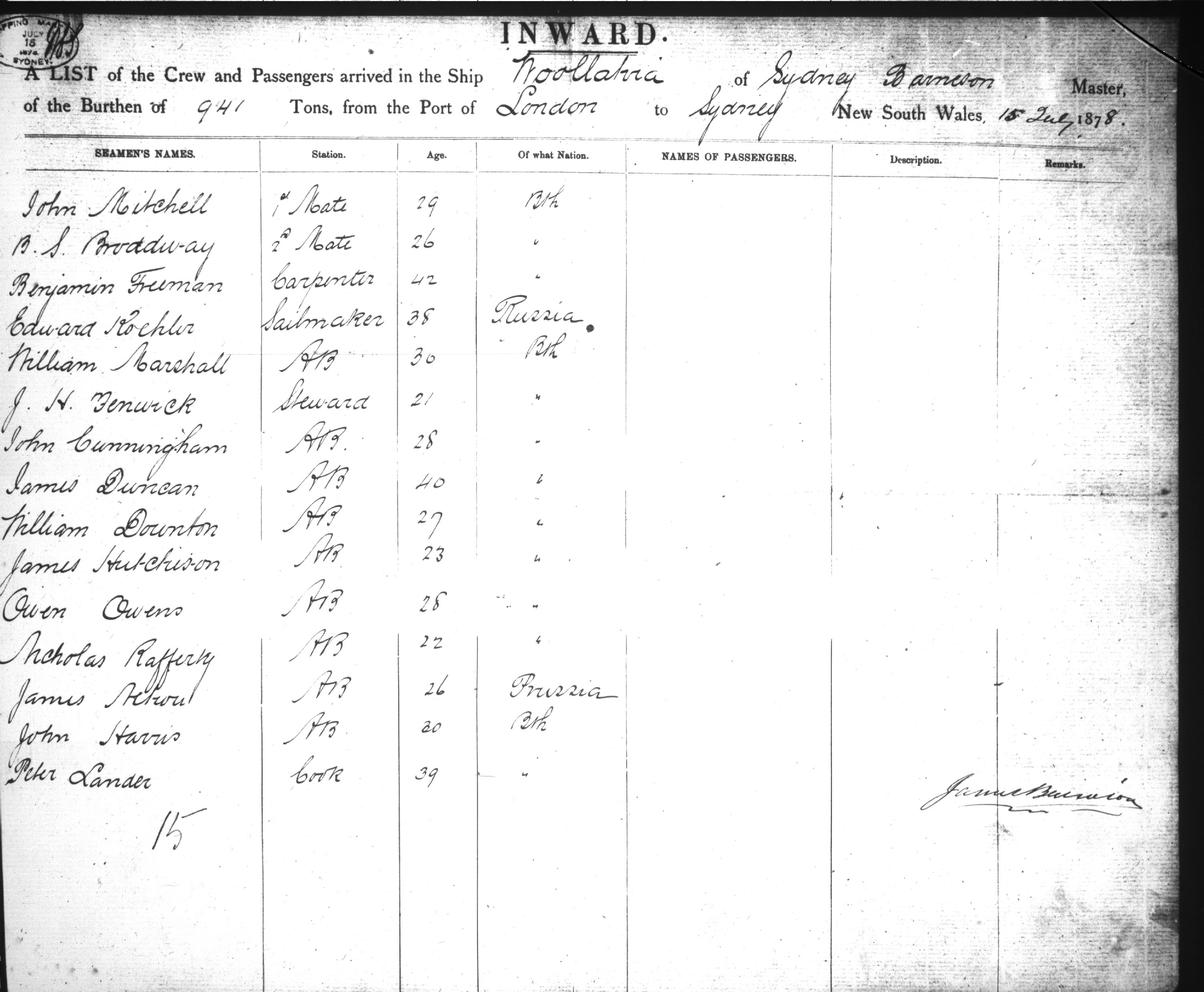 SHIPPING MA
JULY
15
1878
SYDNEY
INWARD.
A LIST of the Crew and Passengers arrived in the Ship Woollahra of Sydney Barneson Master,
of the Burthen of 941 Tons, from the Port of London to Sydney New South Wales, 15 July 1878.
SEAMEN'S NAMES. Station. Age. Of what Nation. NAMES OF PASSENGERS. Description. Remarks.
John Mitchell 1st Mate 29 Bth
B. S. Broddway 2d Mate 26 "
Benjamin Freeman Carpenter 42 "
Edward Koehler Sailmaker 38 Russia
William Marshall AB 30 Bth
J. H. Fenwick Steward 21 "
John Cunningham AB. 28 "
James Duncan AB 40 "
William Downton AB 27 "
James Hutchison AB 23 "
Owen Owens AB 28 "
Nicholas Rafferty AB 22 "
James AB 26 Prussia
John Harris AB 20 Bth
Peter Lander Cook 39 "
James Barneson
15